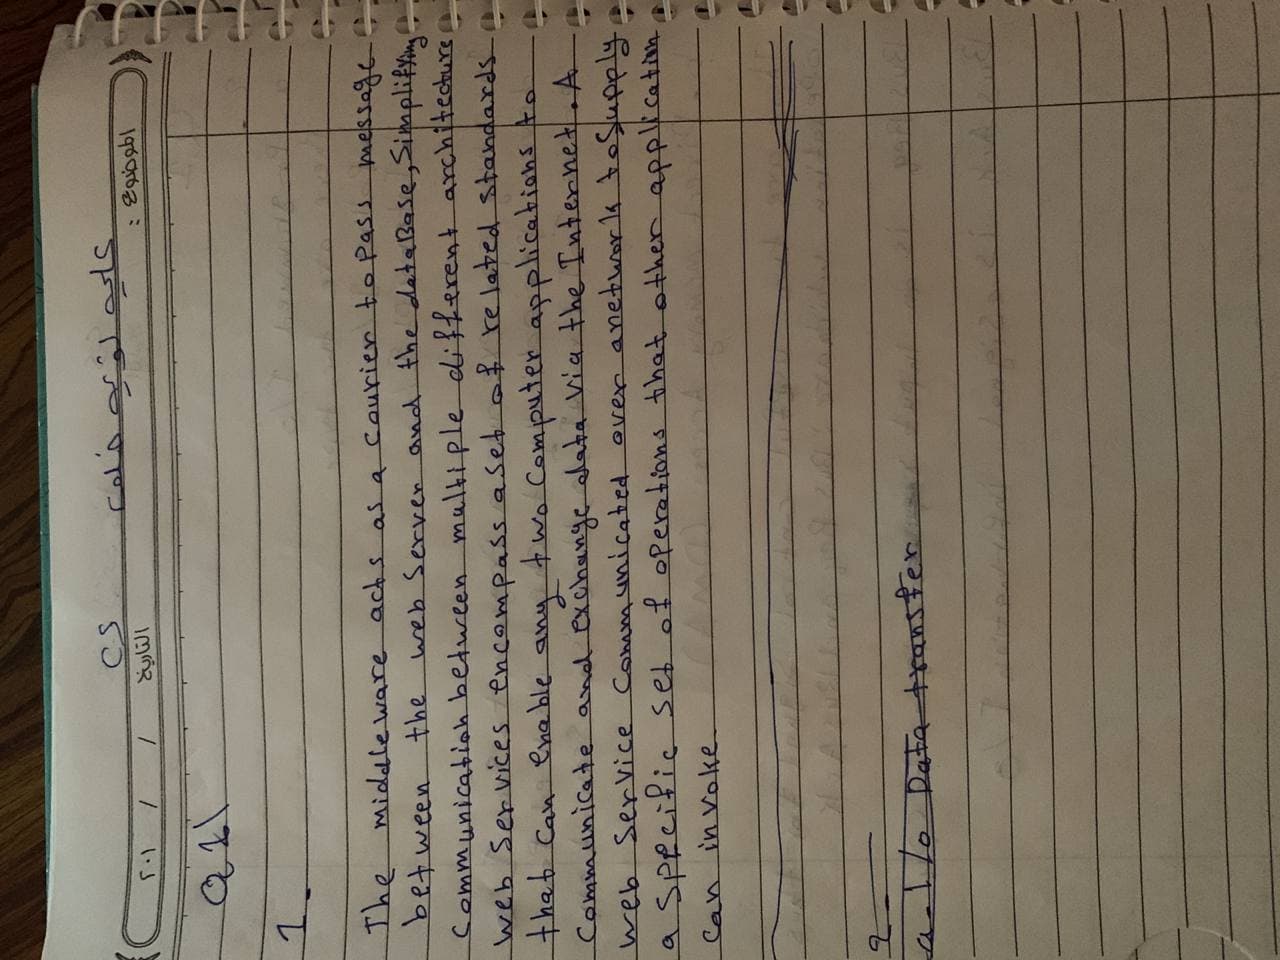 CS
الموضوع :
التاريخ / / ٢٠١
Q1\
1-
The middleware acts as a courier to pass message
between the web server and the dataBase, Simplifying
Communication between multiple different architecture
Web Services encompass a set of related standards
that Can enable any two Computer applications to
Communicate and exchange data via the Internet. A
Web Service Communicated over a network to Supply
a Specific set of operations that other application
Can invoke
2-
a- I/o Data transfer